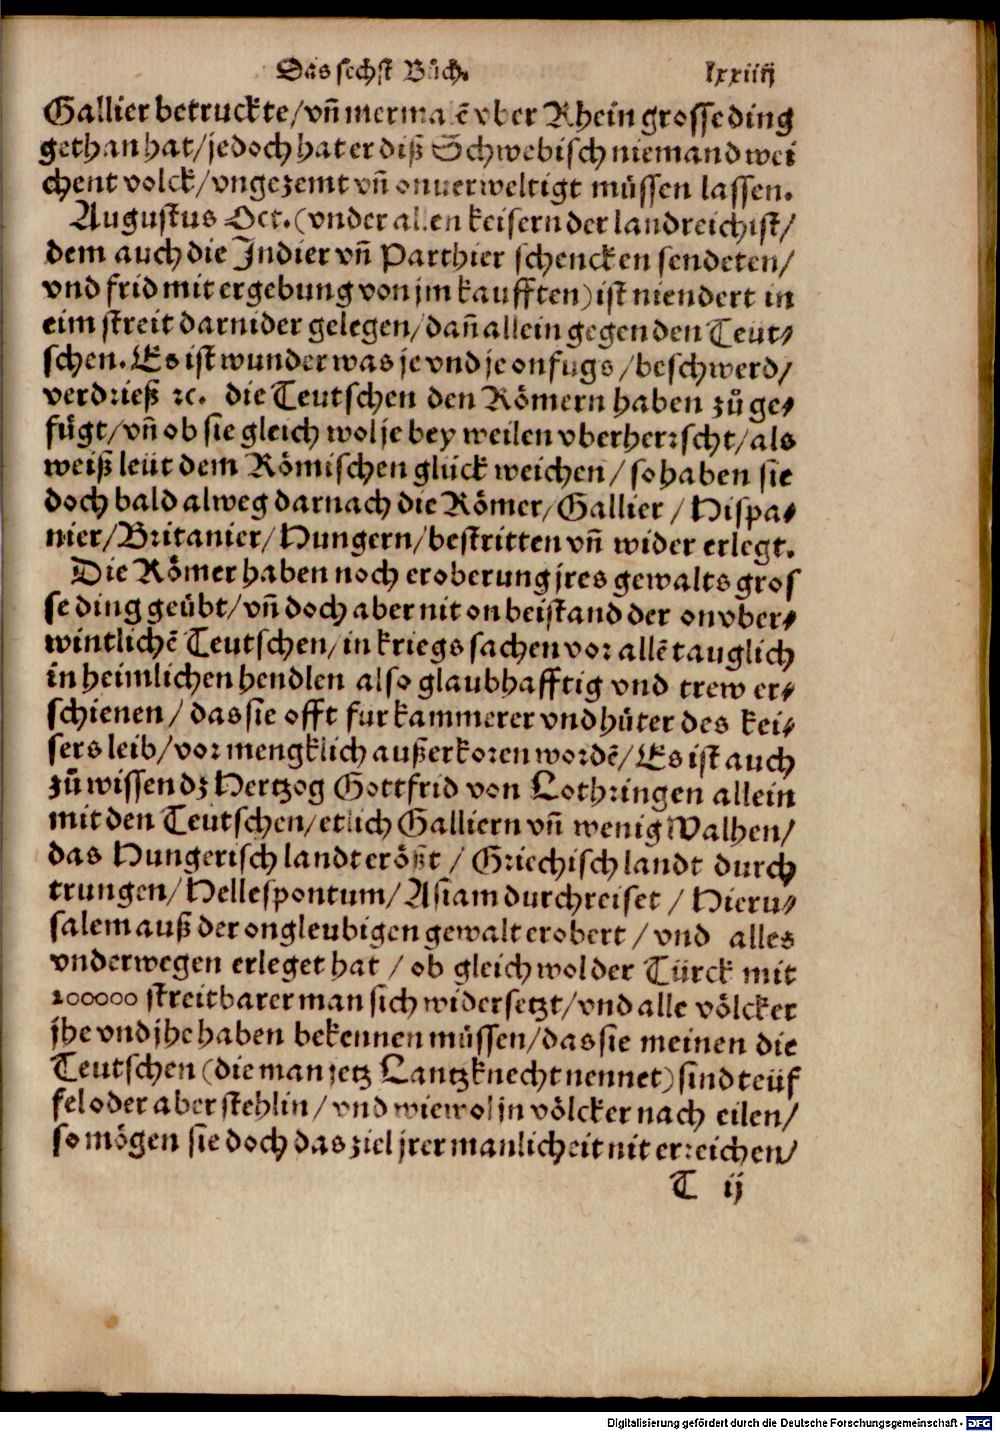 Das sechst Bůch. lxxiiij
Gallier betruckte/vñ mermalẽ vber Rhein grosse ding
gethan hat/jedoch hat er diß Schwebisch niemand wei
chent volck/vngezemt vñ onuerweltigt müssen lassen.
Augustus Oct.(vnder allen keisern der landreichist/
dem auch die Indier vñ Parthier schencken sendeten/
vnd frid mit ergebung von jm kaufften) ist niendert in
eim streit darnider gelegen/dañ allein gegen den Teut⸗
schen. Es ist wunder was je vnd je onfugs/beschwerd/
verdrieß ꝛc. die Teutschen den Römern haben zů ge⸗
fügt/vñ ob sie gleich wol je bey weilen vberherrscht/als
weiß leüt dem Römischen glück weichen/so haben sie
doch bald alweg darnach die Römer/Gallier/Hispa⸗
nier/Britanier/Hungern/bestritten vñ wider erlegt.
Die Römer haben noch eroberung jres gewalts gros
se ding geübt/vñ doch aber nit on beistand der onvber⸗
wintlichẽ Teutschen/in kriegs sachen vor allẽ tauglich
in heimlichen hendlen also glaubhafftig vnd trew er⸗
schienen/das sie offt fur kammerer vnd hüter des kei⸗
sers leib/vor mengklich außerkoren wordẽ/Es ist auch
zů wissen dz Hertzog Gottfrid von Lothringen allein
mit den Teutschen/etlich Galliern vñ wenig Walhen/
das Hungerisch landt erößt/Griechisch landt durch
trungen/Hellespontum/Asiam durchreiset/Hieru⸗
salem auß der ongleubigen gewalt erobert/vnd alles
vnderwegen erleget hat/ob gleich wol der Türck mit
200000 streitbarer man sich widersetzt/vnd alle völcker
jhe vnd jhe haben bekennen müssen/das sie meinen die
Teutschen (die man jetz Lantzknecht nennet) sind teüf
fel oder aber stehlin/vnd wiewol jn völcker nach eilen/
so mögen sie doch das ziel jrer manlicheit nit erreichen/
T ij
Digitalisierung gefördert durch die Deutsche Forschungsgemeinschaft - DFG